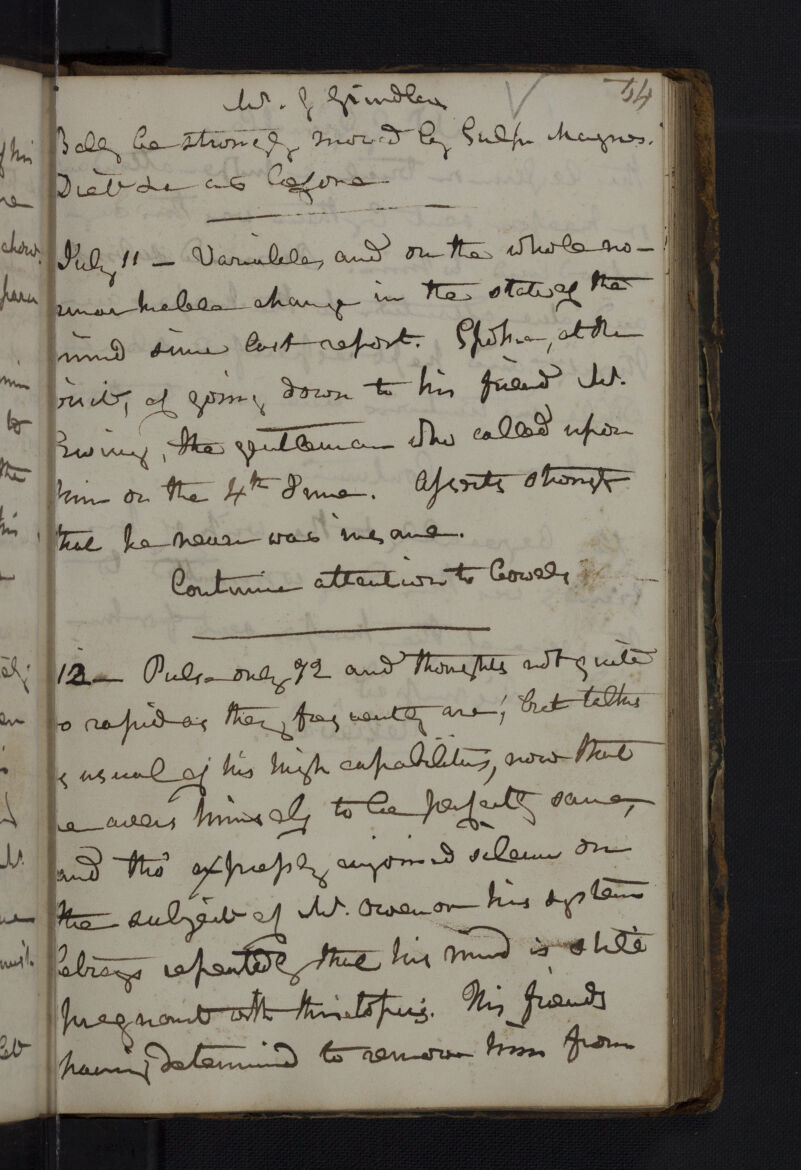 54
Mr. J Grindlay
Belly be strongly moved by Sulph Magnes.
Diet &c as before
July 11 — Variable, and on the whole no
remarkable change in the state of the
mind since last report. Spoke, at the
visit, of going down to his friend Mr.
Ewing, the gentleman who called upon
him on the 4th June. Asserts strongly
that he never was insane.
Continue attention to bowels
12 — Pulse only 92 and thoughts not quite
so rapid as they frequently are; but talks
as usual of his high capabilities, now that
he avers himself to be perfectly sane,
and tho' expressly enjoined silence on
the subject of Mr. Owen or his system
betrays repeatedly that his mind is still
pregnant with this topic. His friends
having determined to remove him from